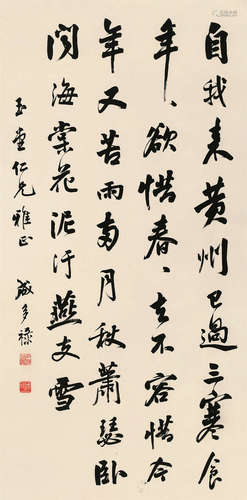 自我来黄州已过三寒食
年、欲惜春、去不容惜今
年又苦雨两月秋萧瑟卧
闻海棠花泥污燕支雪
玉堂仁兄雅正
成多禄